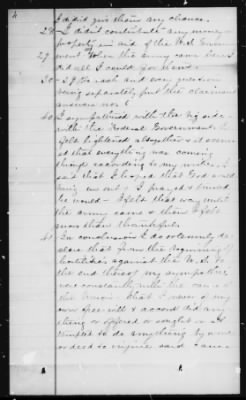 4
I did give them any chance.
28 - I didn't contribute any money or
property in aid of the U.S. Govern-
ment. When the army came here I
did all I could for them.
30 - 39 To each and every question
being separately put the claimant
answers no.
40 I sympathized with the side
with the Federal Government. I
felt altogether as it seem-
ed that everything was coming
things according to my wishes. I
said that I hoped that God would
bring us out - I prayed & trusted
he would - I felt that way until
the army came & then I felt
more than thankful.
41 In conclusion I do solemnly de-
clare that from the beginning of
hostilities against the U.S. to
the end thereof my sympathies
were constantly with the cause of
the Union - that I never of my
own free will & accord did any
thing or offered or sought or at-
tempted to do anything by word
or deed to injure said cause